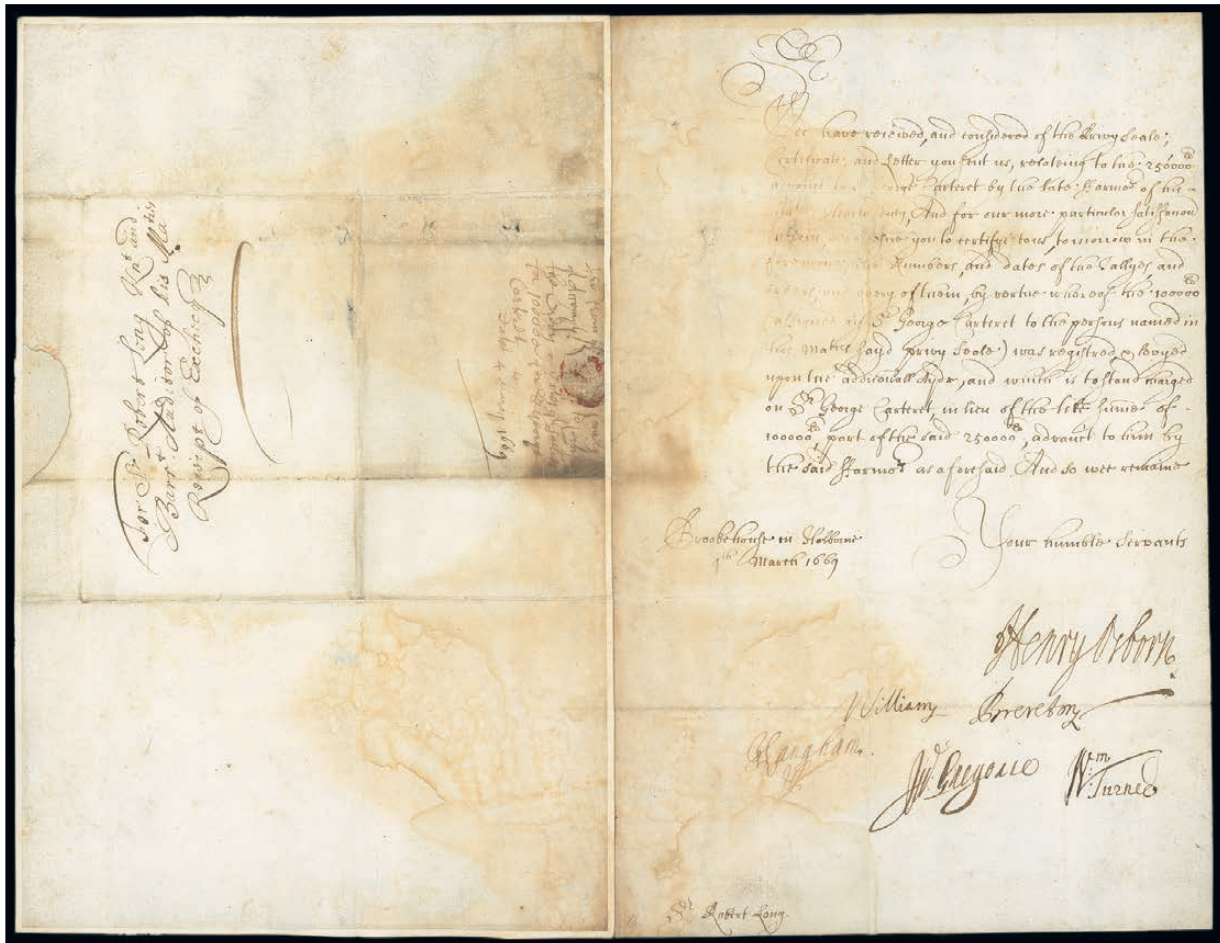 For Sr. Robert Long Knt and
Barrt Auditor of his Maties
Receipt of Excheqr
for 100000
Carteret
March 1669
Sr
Wee have received, and considered of the Privy Seale,
Certificate, and Letter you sent us, relateing to the 250000ls
George Carteret by the late Farmors of his
duty, And for our more particular satisfaccon
you to certifye to us, to morrow in the
forenoone, the Numbers, and dates of the Tallyes, and
Orders, and every of them, by vertue whereof the 100000ls
(assigned Sr George Carteret to the persons named in
his Maties sayd privy Seale) was registred, & leveyed
upon the addiconall Ayde, and which is to stand charged
on Sr George Carteret, in lieu of the like summe of
100000ls, part of the said 250000ls, advanct to him by
the said Farmors as aforesaid And so wee remaine
Brookehouse in Holborne
March 1669
Your humble Servants
Henry Osborn
William Brereton
Langham.
Jo. Gregorie Wm Turner
Sr Robert Long